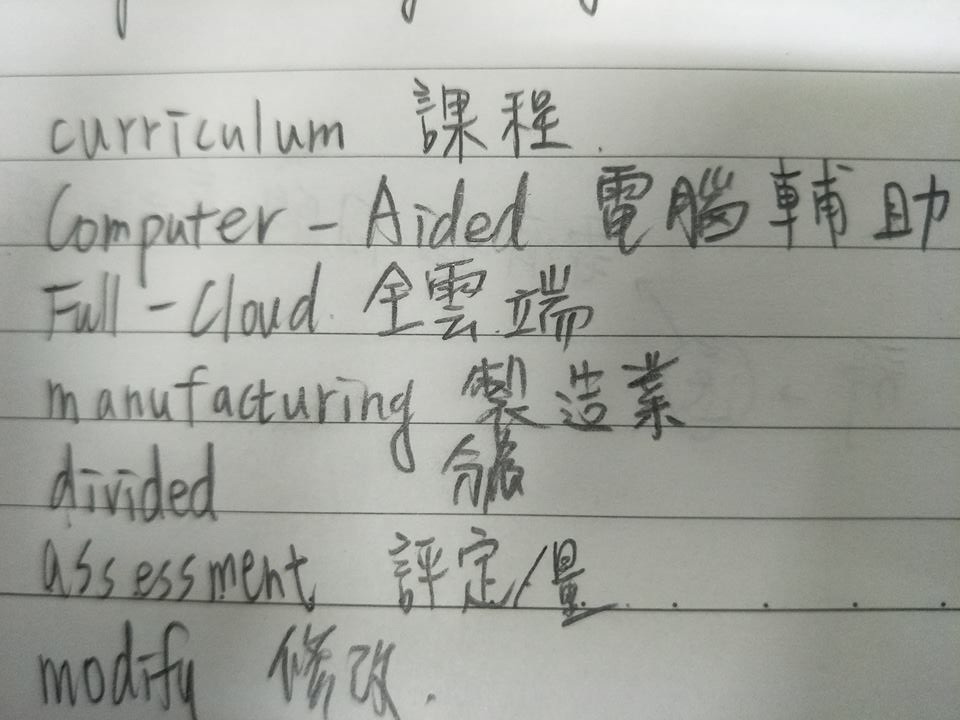 curriculum 課程.
Computer - Aided 電腦輔助
Full - Cloud 全雲端
manufacturing 製造業
divided 分
assessment 評定/量
modify 修改.